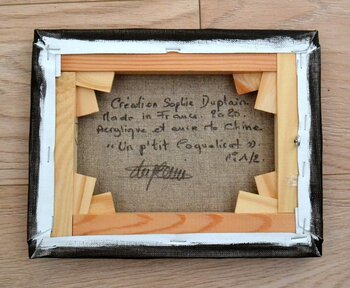 Création Sophie Duplain.
Made in France. 2020.
Acrylique et encre de Chine.
"Un p'tit Coquelicot".
N°1/2.